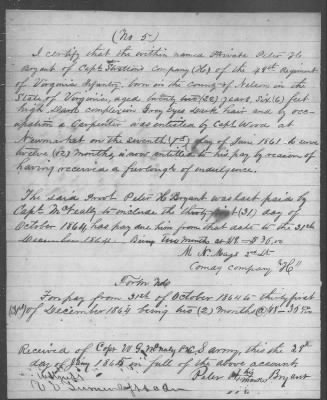 (No 5)
I certify that the within named Private Peter H
Bryant of Capt company (H) of the 49th Regiment
of Virginia Infantry, born in the county of Nelson in the
State of Virginia, aged twenty two (22) years, Six (6) feet
high Dark complexion Grey Eyes Dark hair and by occ-
upation a Carpenter was enlisted by Capt Wood at
Newmarket on the seventh (7th) day of June 1861 to serve
twelve (12) months, is now entitled to his pay by reason of
having received a furlough of indulgence.
The said Private Peter H Bryant was last paid by
Capt McNeally to include the thirty first (31) day of
October 1864 & has pay due him from that date to the 31st
December 1864. Being two months at
2nd Lt
Comdg company "H"
For pay from 31st of October 1864 to thirty first
(31st) of December 1864 being two (2) months @
Received of Capt W G McNeally C S army, this the 28th
day of Jany 1865 in full of the above account,
Peter H his mark Bryant
Witness